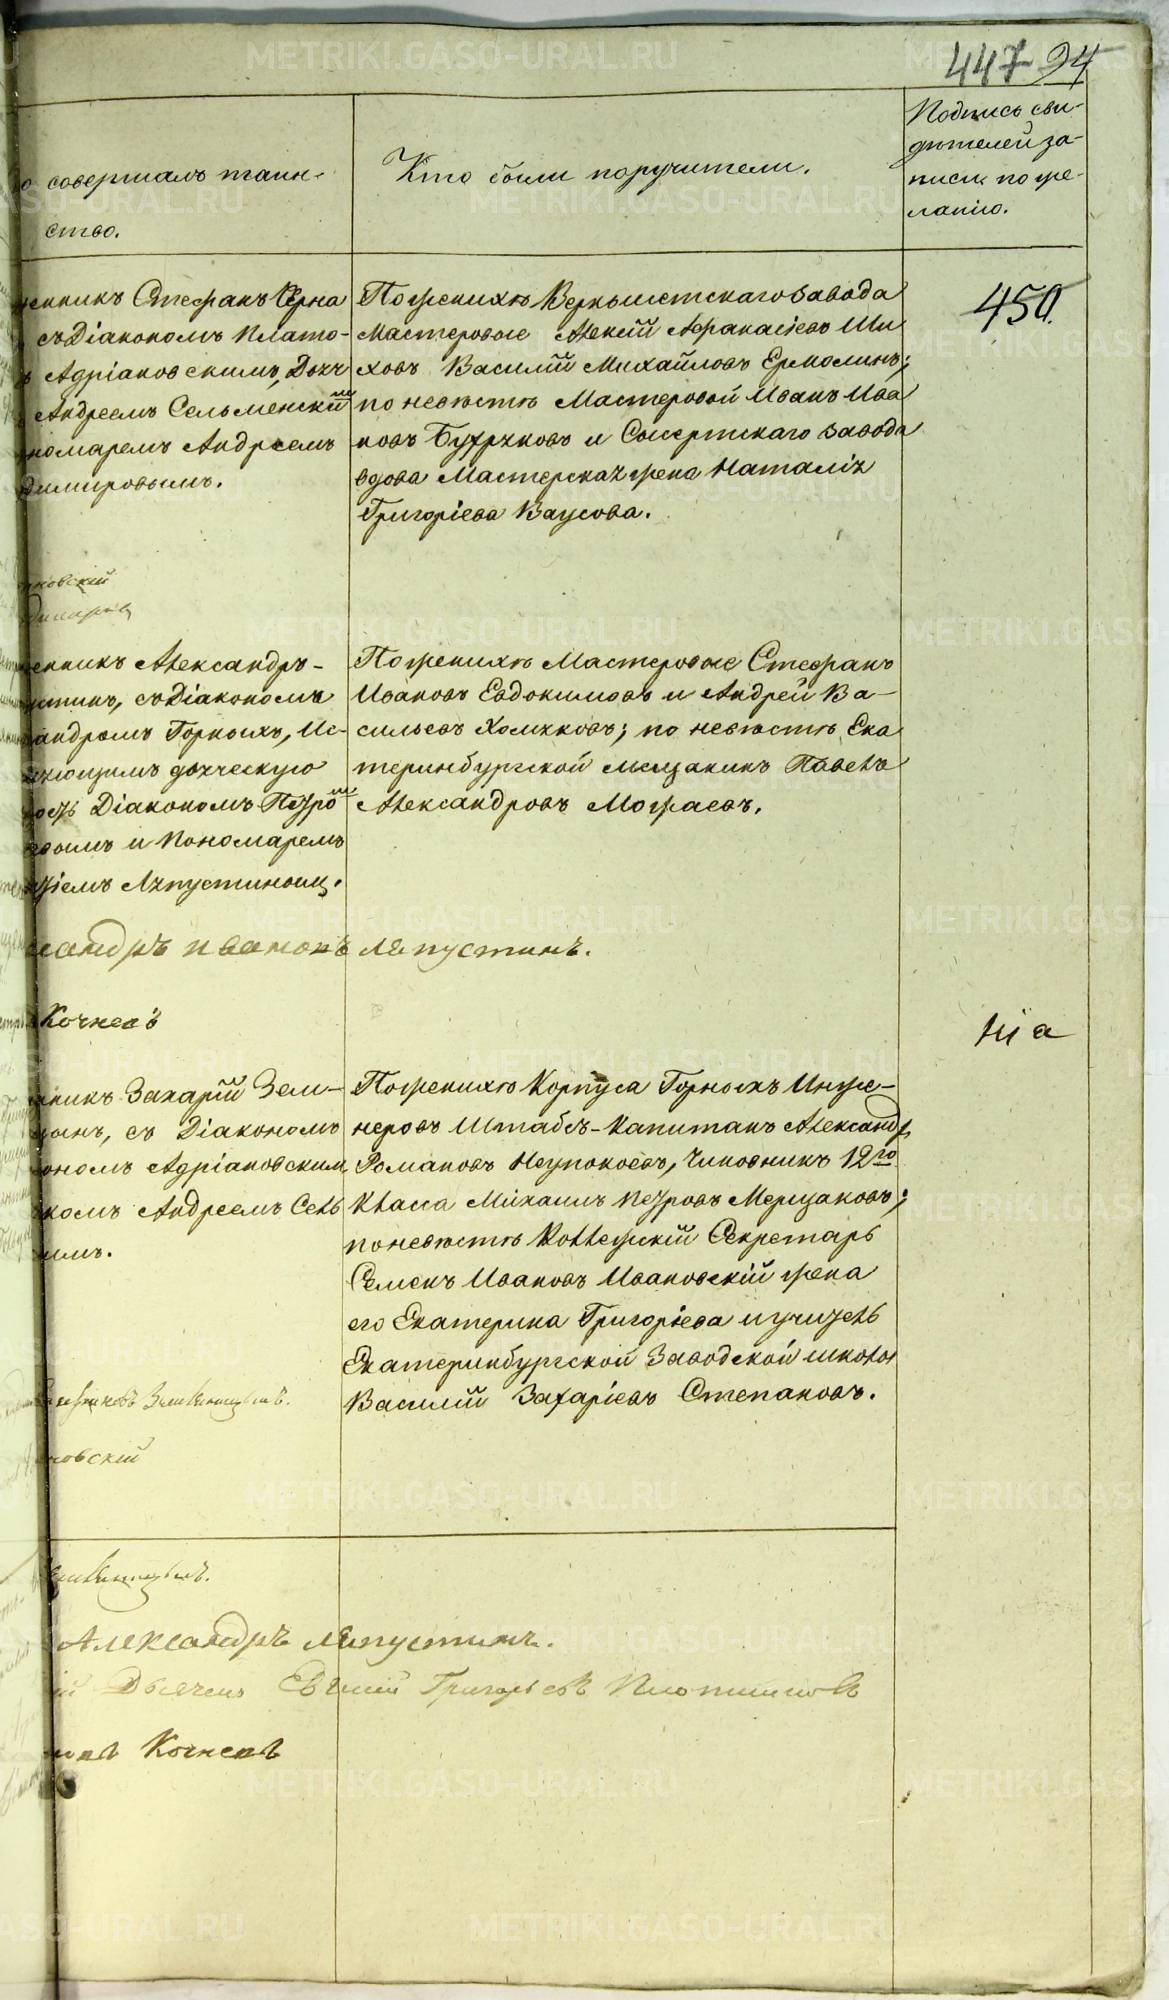 447 94
о совершалъ таин-
ство.
Кто были поручители.
Подпись сви-
дѣтелей за-
писи по же-
ланію.
450.
енникъ Стефанъ Черна
съ Діакономъ Плато-
ъ Адріановскимъ, Дьяч
Андреемъ Сельменскимъ
номаремъ Андреемъ
димировымъ.
По женихѣ Верхъисетскаго завода
Мастеровые Алексѣй Афанасіевъ Ши
ховъ Василій Михайловъ Ермолинъ;
по невѣстѣ Мастеровой Иванъ Ива
новъ и Сысертскаго завода
вдова Мастерская жена Наталія
Григоріева Ваусова.
новскій
енникъ Александръ-
устинъ, съ Діакономъ
андромъ Горныхъ, Ис-
яющимъ дьяческую
ость Діакономъ Петро
вымъ и Пономаремъ
Ляпустиным.
По женихѣ Мастеровые Стефанъ
Ивановъ Евдокимовъ и Андрей Ва-
сильевъ Хомяковъ; по невѣстѣ Ека
теринбургской мещанинъ Павелъ
Александровъ Можаевъ.
сандръ ивановъ ляпустинъ.
Кочневъ
на
никъ Захарій Зем-
ынъ, съ Діакономъ
ономъ Адріановским
комъ Андреемъ Сель
имъ.
По женихѣ Корпуса Горныхъ Инже-
неровъ Штабсъ-Капитанъ Александръ
Романовъ Неупокоевъ, Чиновникъ 12го
класса Михаилъ Петровъ Мерцаковъ;
по невѣстѣ Коллежскій Секретарь
Семенъ Ивановъ Ивановскій жена
его Екатерина Григоріева и учитель
Екатеринбургской Заводской школы
Василій Захаріевъ Степановъ.
новскій
Александръ ляпустинъ.
й Дьячекъ Евгеній Григорьевъ Плотниковъ
Кочневъ
METRIKI.GASO-URAL.RU